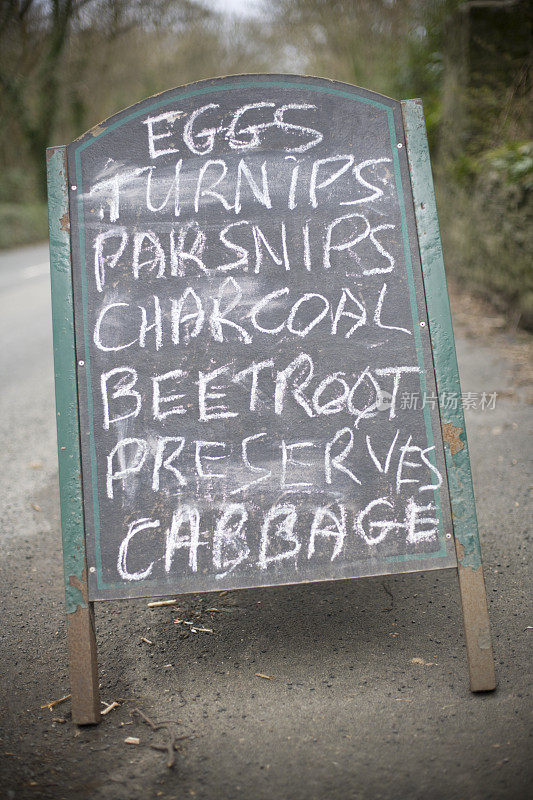 EGGS
TURNIPS
PARSNIPS
CHARCOAL
BEETROOT
PRESERVES
CABBAGE
新图网